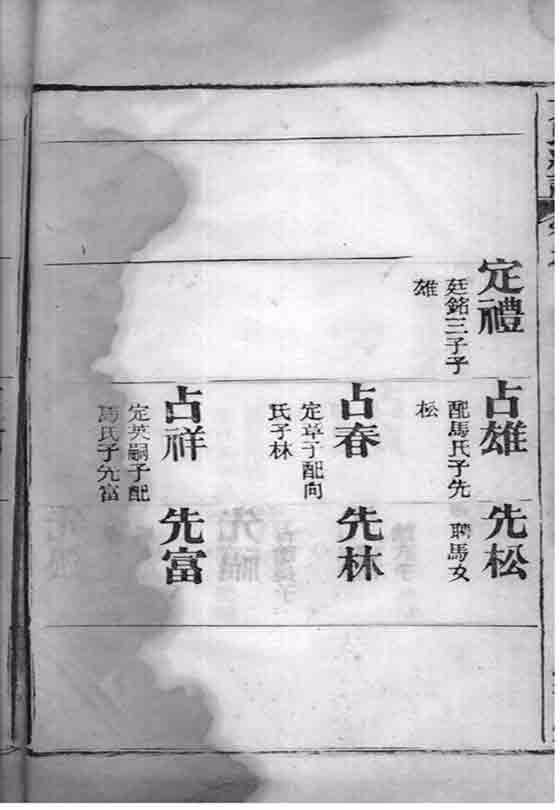 定禮
廷銘三子子
雄
占雄
配馬氏子先
松
先松
聘馬女
占春
定章子配向
氏子林
先林
占祥
定英嗣子配
馬氏子先富
先富